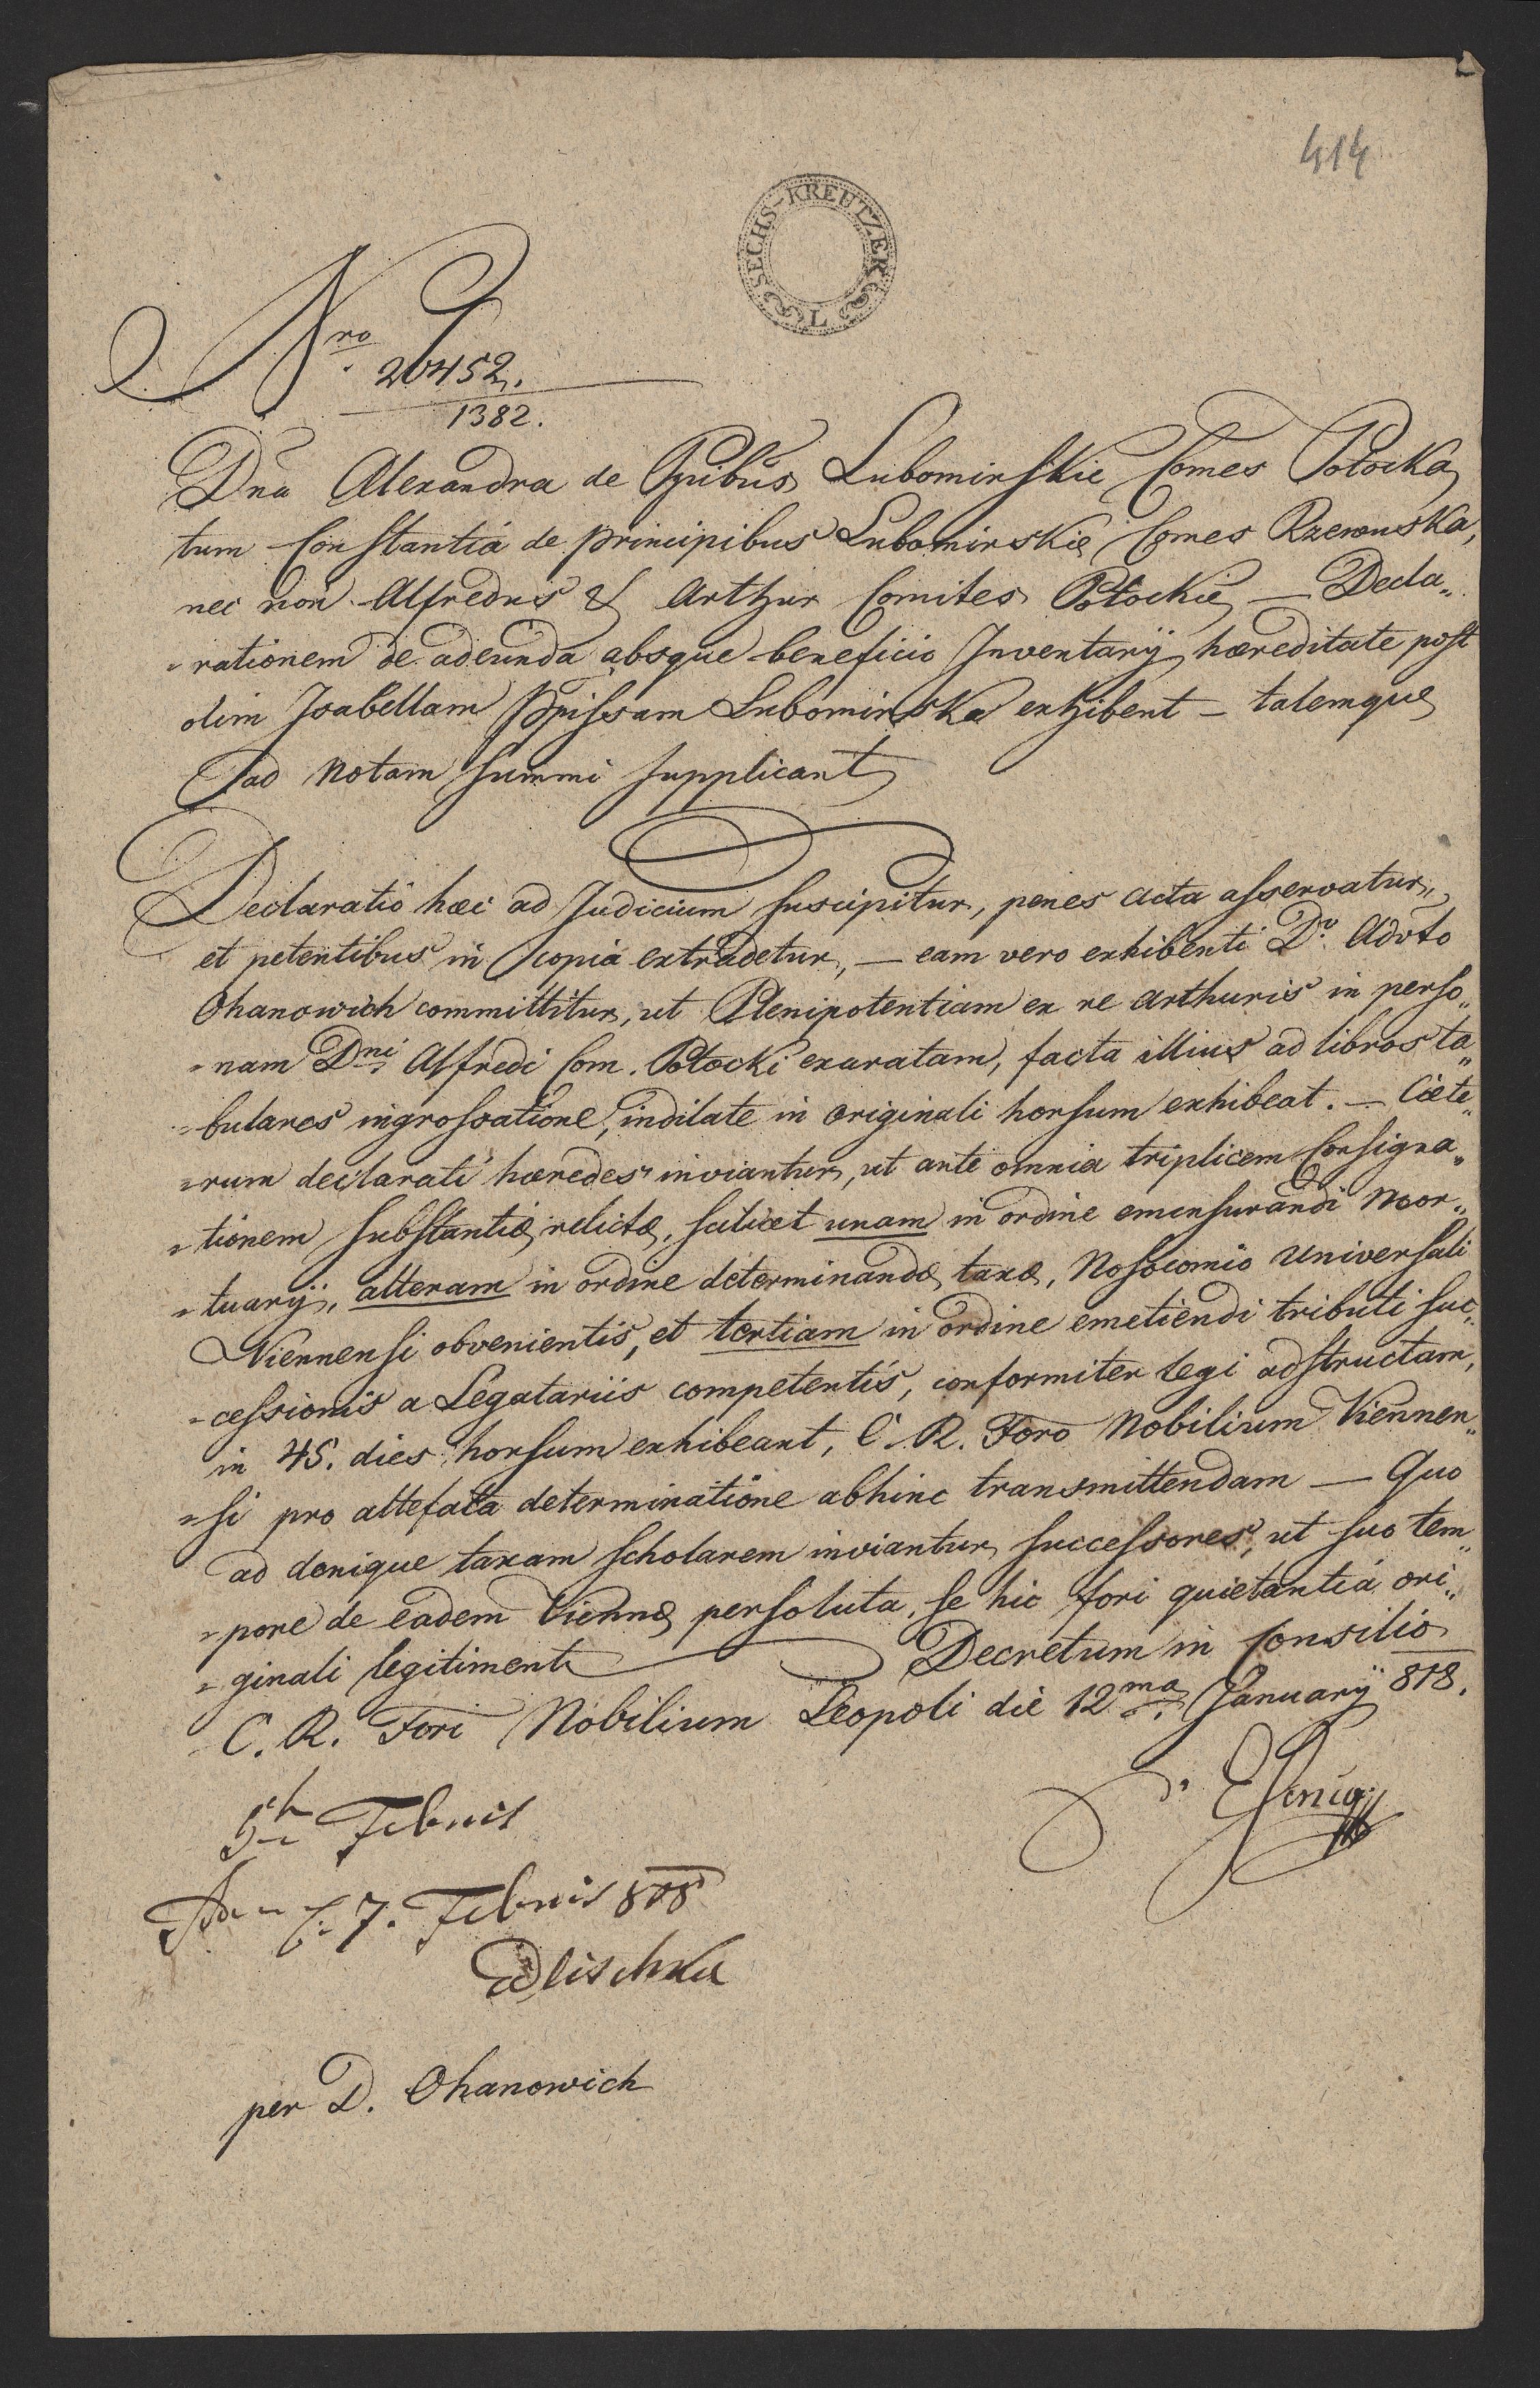 414
SECHS-KREUTZER
L
Nro 20452.
1382.
Dna Alexandra de Ppibus Lubomirskie Comes Potocka
tum Constantia de principibus Lubomirskie Comes Rzewuska,
nec non Alfredus & Arthur Comites Potockie — Decla„
„rationem de adeunda absque beneficio Inventarÿ hæreditate post
olim Isabellam Ppissam Lubomirska exhibent — talemque
ad Notam summi supplicant
Declaratio hæc ad Judicium suscipitur, penes acta asservatur,
et petentibus in copia extradetur, — eam vero exhibenti Do. Advto
Ohanowich committitur, ut Plenipotentiam ex re Arthuris in perso„
„nam Dni Alfredi Com. Potocki exaratam, facta illius ad libros ta„
„bulares ingrossatione, indilate in originali horsum exhibeat. — Cæte„
„rum declarati hæredes inviantur, ut ante omnia triplicem Consigna„
„tionem substantiæ relictæ, scilicet unam in ordine emensurandi Mor„
„tuarÿ, alteram in ordine determinandæ taxæ, Nosocomio Universali
Viennensi obvenientis, et tertiam in ordine emetiendi tributi suc„
„cessionis a Legatariis competentis, conformiter legi adstructam,
in 45. dies horsum exhibeant, C. R. Foro Nobilium Viennen„
„si pro attefata determinatione abhinc transmittendam — Quo
ad denique taxam scholarem inviantur successores, ut suo tem„
„pore de eadem Viennæ persoluta, se hic fori quietantia ori„
„ginali legitiment — Decretum in Consilio
C. R. Fori Nobilium Leopoli die 12ma Januarÿ 818.
5ta Febuis
7. Febuis 818
Edlischka
per D. Ohanowich